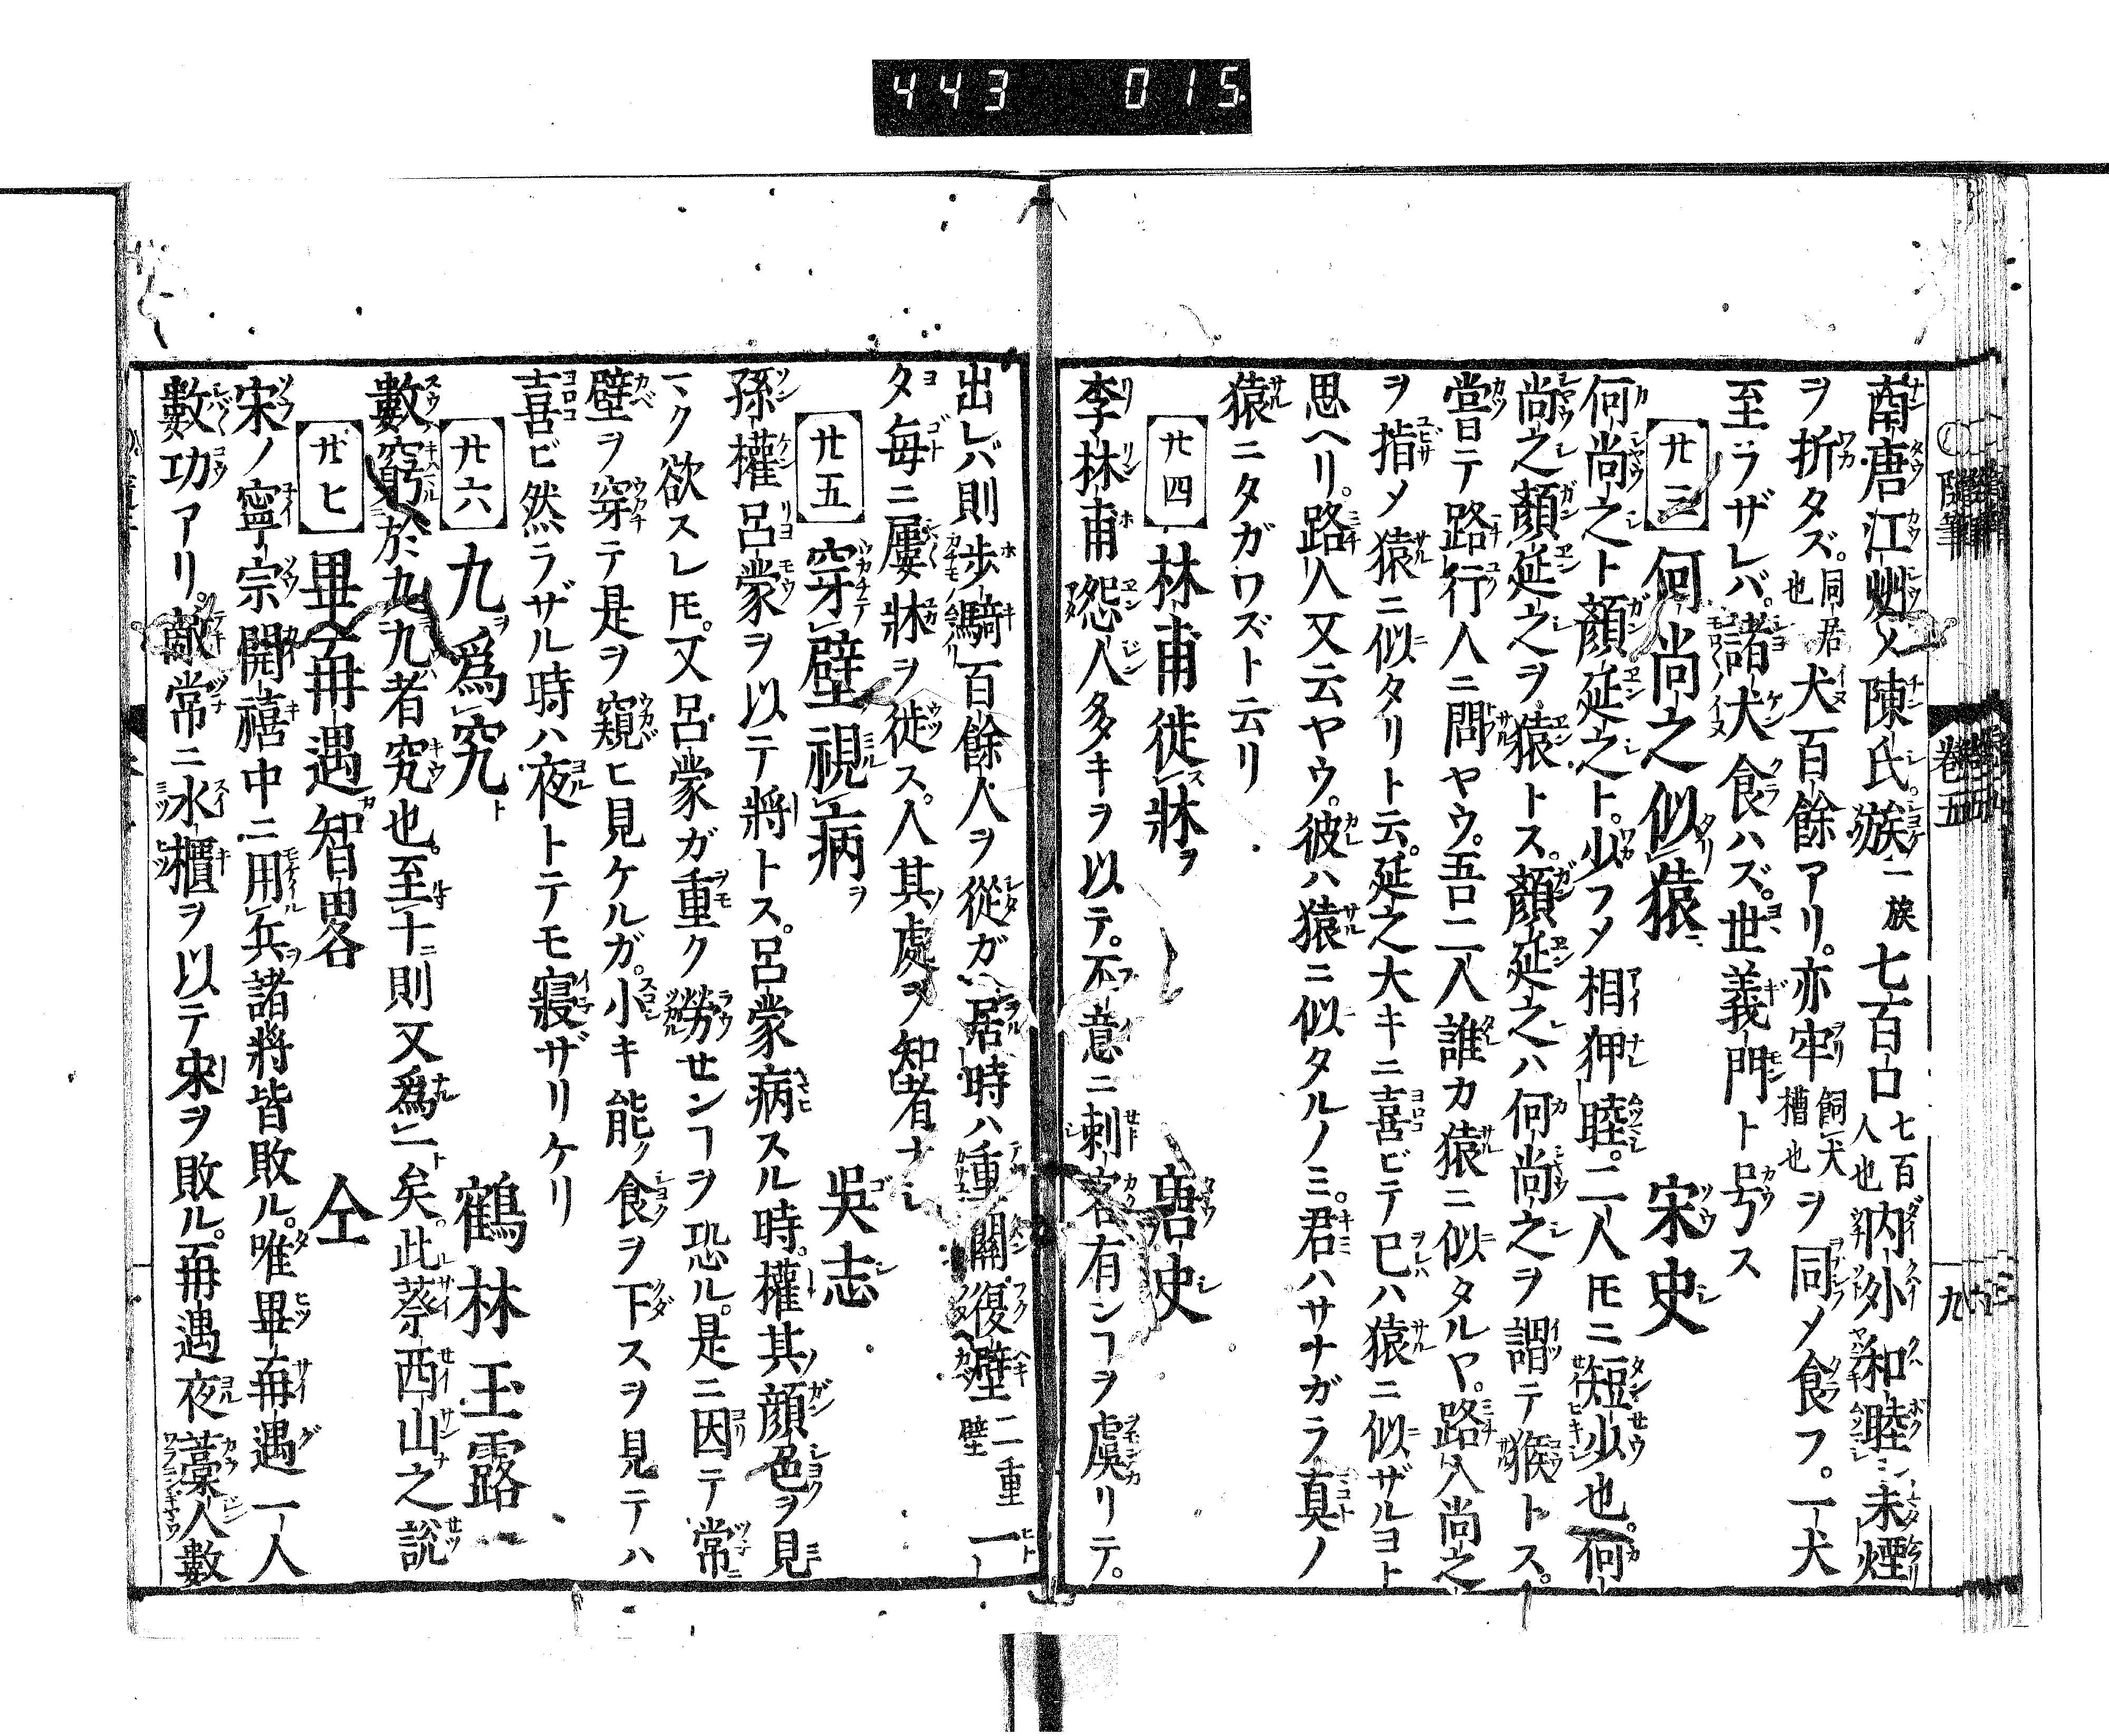 443 015
南唐江州ノ陳氏族一族七百口七百人也内外和睦シ未煙
ヲ折タズ。同居也犬百餘アリ。亦牢飼犬槽也ヲ同メ食フ。一犬
至ラザレバ。諸犬食ハズ。世義門ト号ス
廿三 何尚之似猿 宋史
何尚之ト顏延之ト。少フメ相狎睦。二人モニ短少也。何
尚之顏延之ヲ猿トス。顏延之ハ何尚之ヲ謂テ猴トス。
嘗日テ路行人ニ問ヤウ。吾二人誰カ猿ニ似タルヤ。路人尚之
ヲ指メ猿ニ似タリト云。延之大キニ喜ビテ已ハ猿ニ似ザルヨト
思ヘリ。路人又云ヤウ。彼ハ猿ニ似タルノミ。君ハサナガラ真ノ
猿ニタガワズト云リ
廿四 林甫徙牀ヲ 唐史
李林甫怨人多キヲ以テ。不意ニ刺客有ンヿヲ虞リテ。
出レバ則歩騎百餘人ヲ從ガヘ居時ハ重關復壁二重壁一
タ毎ニ屢牀ヲ徙ス。人其處ヲ知者ナシ
廿五 穿壁視病ヲ 吳志
孫權呂蒙ヲ以テ將トス。呂蒙病スル時。權其顔色ヲ見
マク欲スレモ。又呂蒙ガ重ク勞せンヿヲ恐ル。是ニ因テ常
壁ヲ穿テ是ヲ窺ヒ見ケルガ。小キ能ク食ヲ下スヲ見テハ
喜ビ然ラザル時ハ夜トテモ寢ザリケリ
廿六 九爲究ト 鶴林玉露
數窮於九九者究也。至十則又爲一矣。此蔡西山之說
廿七 畢再遇智畧 仝
宋ノ寧宗開禧中ニ用兵諸將皆敗ル。唯畢再遇一人
數功アリ。敵常ニ水櫃ヲ以テ宋ヲ敗ル。再遇夜藁人數
隨筆 卷五 九